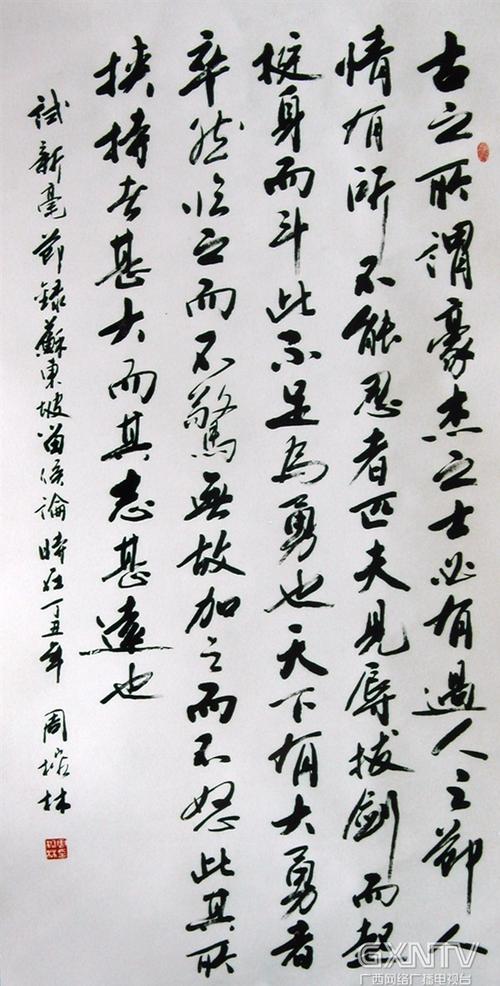 古之所謂豪杰之士必有過人之節人
情有所不能忍者匹夫見辱拔劍而起
挺身而斗此不足為勇也天下有大勇者
卒然临之而不驚無故加之而不怒此其所
挟持者甚大而其志甚遠也
試新毫節録蘇東坡留侯論時在丁丑年 周培林
GXNTV
广西网络广播电视台